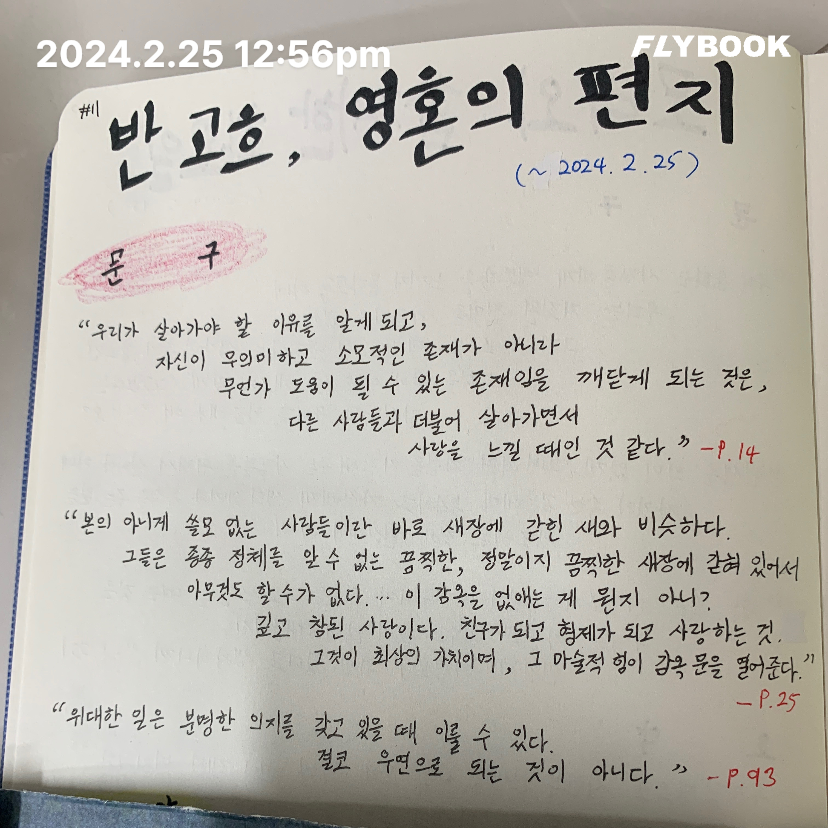 2024.2.25 12:56pm
FLYBOOK
#11
반 고흐, 영혼의 편지
(~ 2024. 2. 25)
문 구
"우리가 살아가야 할 이유를 알게 되고,
자신이 무의미하고 소모적인 존재가 아니라
무언가 도움이 될 수 있는 존재임을 깨닫게 되는 것은,
다른 사람들과 더불어 살아가면서
사랑을 느낄 때인 것 같다." -P.14
"본의 아니게 쓸모 없는 사람들이란 바로 새장에 갇힌 새와 비슷하다.
그들은 종종 정체를 알 수 없는 끔찍한, 정말이지 끔찍한 새장에 갇혀 있어서
아무것도 할 수가 없다. … 이 감옥을 없애는 게 뭔지 아니?
깊고 참된 사랑이다. 친구가 되고 형제가 되고 사랑하는 것.
그것이 최상의 가치이며, 그 마술적 힘이 감옥 문을 열어준다."
-P.25
"위대한 일은 분명한 의지를 갖고 있을 때 이룰 수 있다.
결코 우연으로 되는 것이 아니다." -P.93